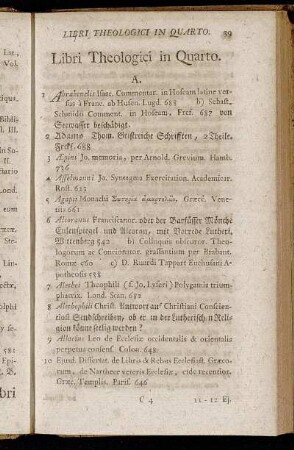 LIBRI THEOLOGICI IN QUARTO. 39
Libri Theologici in Quarto.
A.
1 Abrabenelis Isaac. Commentar. in Hoseam latine versus
à Franc. ab Husen. Lugd. 688 b) Sebast.
Schmidii Comment. in Hoseam, Fref. 687 von
Seewasser beschädigt.
2 Adams Thom. Geistreiche Schrifften, 2 Theile.
Frckf. 688
3 Æpini Jo. memoria, per Arnold. Grevium. Hamb.
736
4 Asselmanni Jo. Syntagma Exercitation. Academicar.
Rost. 623
5 Agapii Monachi Σωτηρία ἁμαρτωλῶν. Græcè. Venetiis
661
6 Alcoranus Franciscanor. oder der Barfüsser Mönche
Eulenspiegel und Alcoran, mit Vorrede Lutheri,
Wittenberg 542 b) Colloquia obituror. Theologorum
ac Concionator. grassantium per Brabant.
Romæ 560 c) D. Ruardi Tappart Enchusani Apotheosis
558
7 Alethei Theophili (f. Jo. Lyseri) Polygamia triumphatrix.
Lond. Scan. 682
8 Alethophili Christ. Antwort auf Christiani Conscientiosi
Sendschreiben, ob er in der Lutherisch-n Religion
könne seelig werden?
9 Allatius Leo de Ecclesiæ occidentalis & orientalis
perpetua consens. Colon. 648
10 Ejusd. Dissertat. de Libris & Rebus Ecclesiast. Græcorum,
de Narthece veteris Ecclesiæ, eide recentior.
Græc. Templis. Paris. 646
C 4 11-12 Ej.